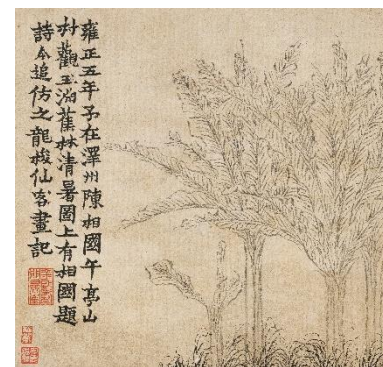 雍正五年予在澤州陳相國午亭山
邨觀蕉林清暑圖上有相國題
詩今追仿之龍梭仙客畫記